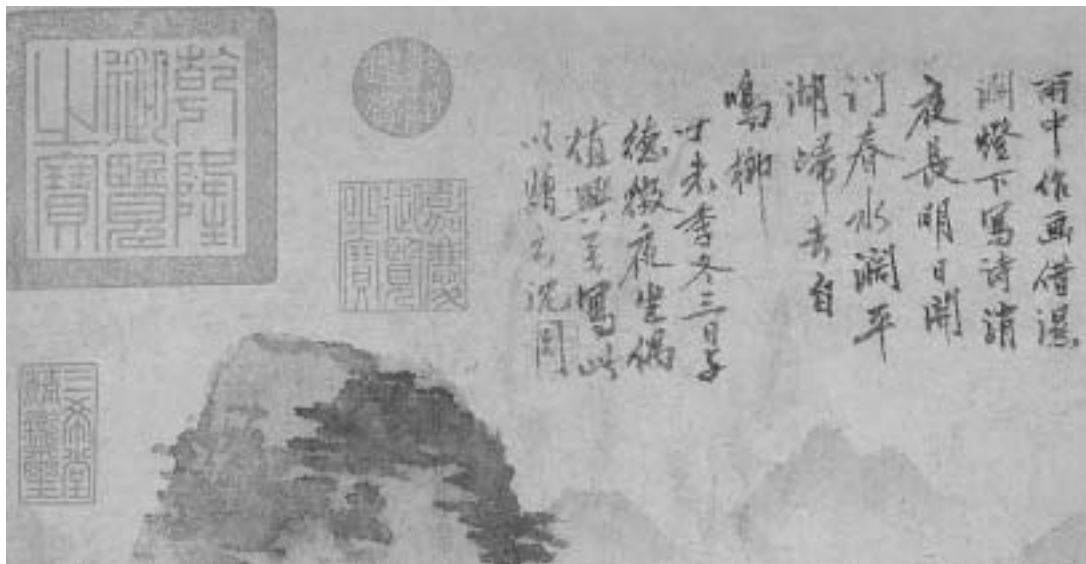 雨中作画借湿
润燈下写诗消
夜長明日開
门春水潤平
湖歸去自
鳴榔
丁未季冬三日与
德徵夜坐偶
值興至寫此
以贈云沈周
嘉慶
御覽
之寳
乾隆
御覽
之寶
三希堂
精鑑璽